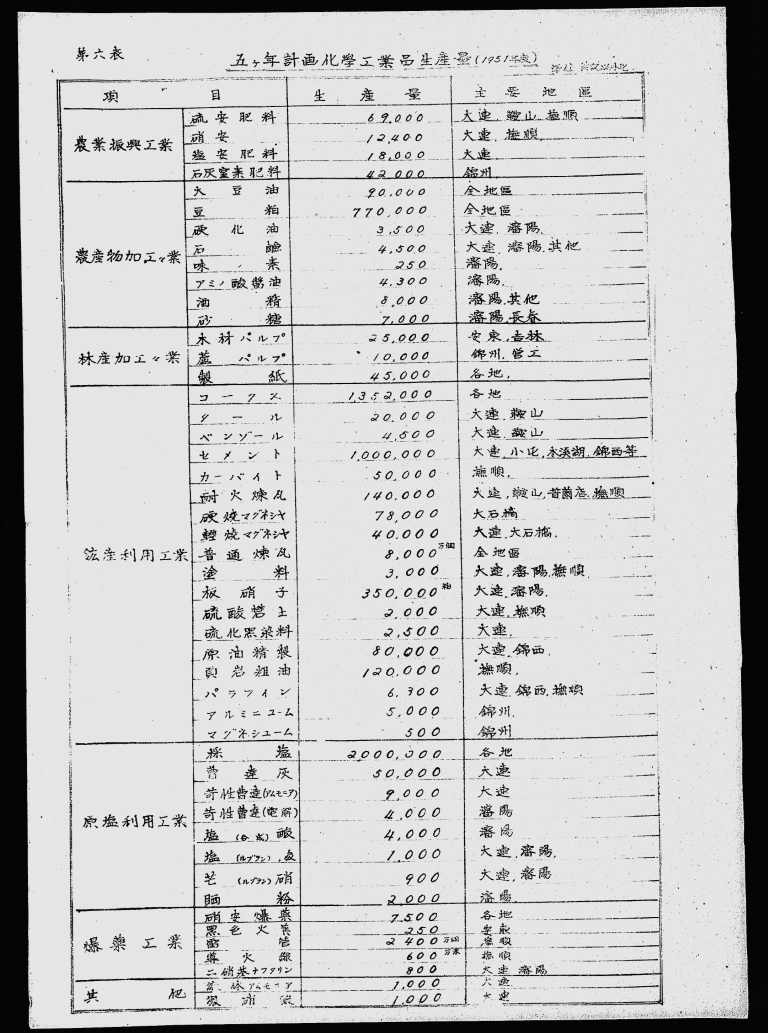 第六表
五ヶ年計画化學工業品生産量(1951年度)
項 目 生 産 量 主 要 地 區
農業振興工業
硫安肥料 69,000 大連,鞍山,撫順
硝安 12,400 大連,撫順
塩安肥料 18,000 大連
石灰窒素肥料 42,000 錦州
農産物加工々業
大豆油 90,000 全地區
豆粕 770,000 全地區
硬化油 3,500 大連,瀋陽
石鹼 4,500 大連,瀋陽,其他
味素 250 瀋陽,
アミノ酸醤油 4,300 瀋陽,
油精 8,000 瀋陽,其他
砂糖 7,000 瀋陽,長春
林産加工々業
木材パルプ 25,000 安東,吉林
葦パルプ 10,000 錦州,営工
製紙 45,000 各地,
鉱産利用工業
コークス 1,352,000 各地
タール 20,000 大連,鞍山
ベンゾール 4,500 大連,鞍山
セメント 1,000,000 大連,小屯,本溪湖,錦西等
カーバイト 50,000 撫順,
耐火煉瓦 140,000 大連,鞍山,普蘭店,撫順
硬焼マグネシヤ 78,000 大石橋
軽焼マグネシヤ 40,000 大連,大石橋,
普通煉瓦 8,000万個 全地區
塗料 3,000 大連,瀋陽,撫順
板硝子 350,000箱 大連,瀋陽,
硫酸礬土 2,000 大連,撫順
硫化黒染料 2,500 大連,
原油精製 80,000 大連,錦西
頁岩粗油 120,000 撫順,
パラフイン 6,300 大連,錦西,撫順
アルミニユーム 5,000 錦州,
マグネシユーム 500 錦州
原塩利用工業
採塩 2,000,000 各地
曹達灰 50,000 大連
苛性曹達(アムモニア) 9,000 大連
苛性曹達(電解) 4,000 瀋陽
塩(合成)酸 4,000 瀋陽
塩(ルブラン) 1,000 大連,瀋陽,
芒(ルブラン)硝 900 大連,瀋陽
晒粉 2,000 瀋陽,
爆薬工業
硝安爆薬 7,500 各地
黒色火薬 250 安東
雷管 2400万個 撫順
導火線 600万米 撫順
二硝基ナフタリン 800 大連,瀋陽
其他
アムモニア 1,000 大連
1,000 大連